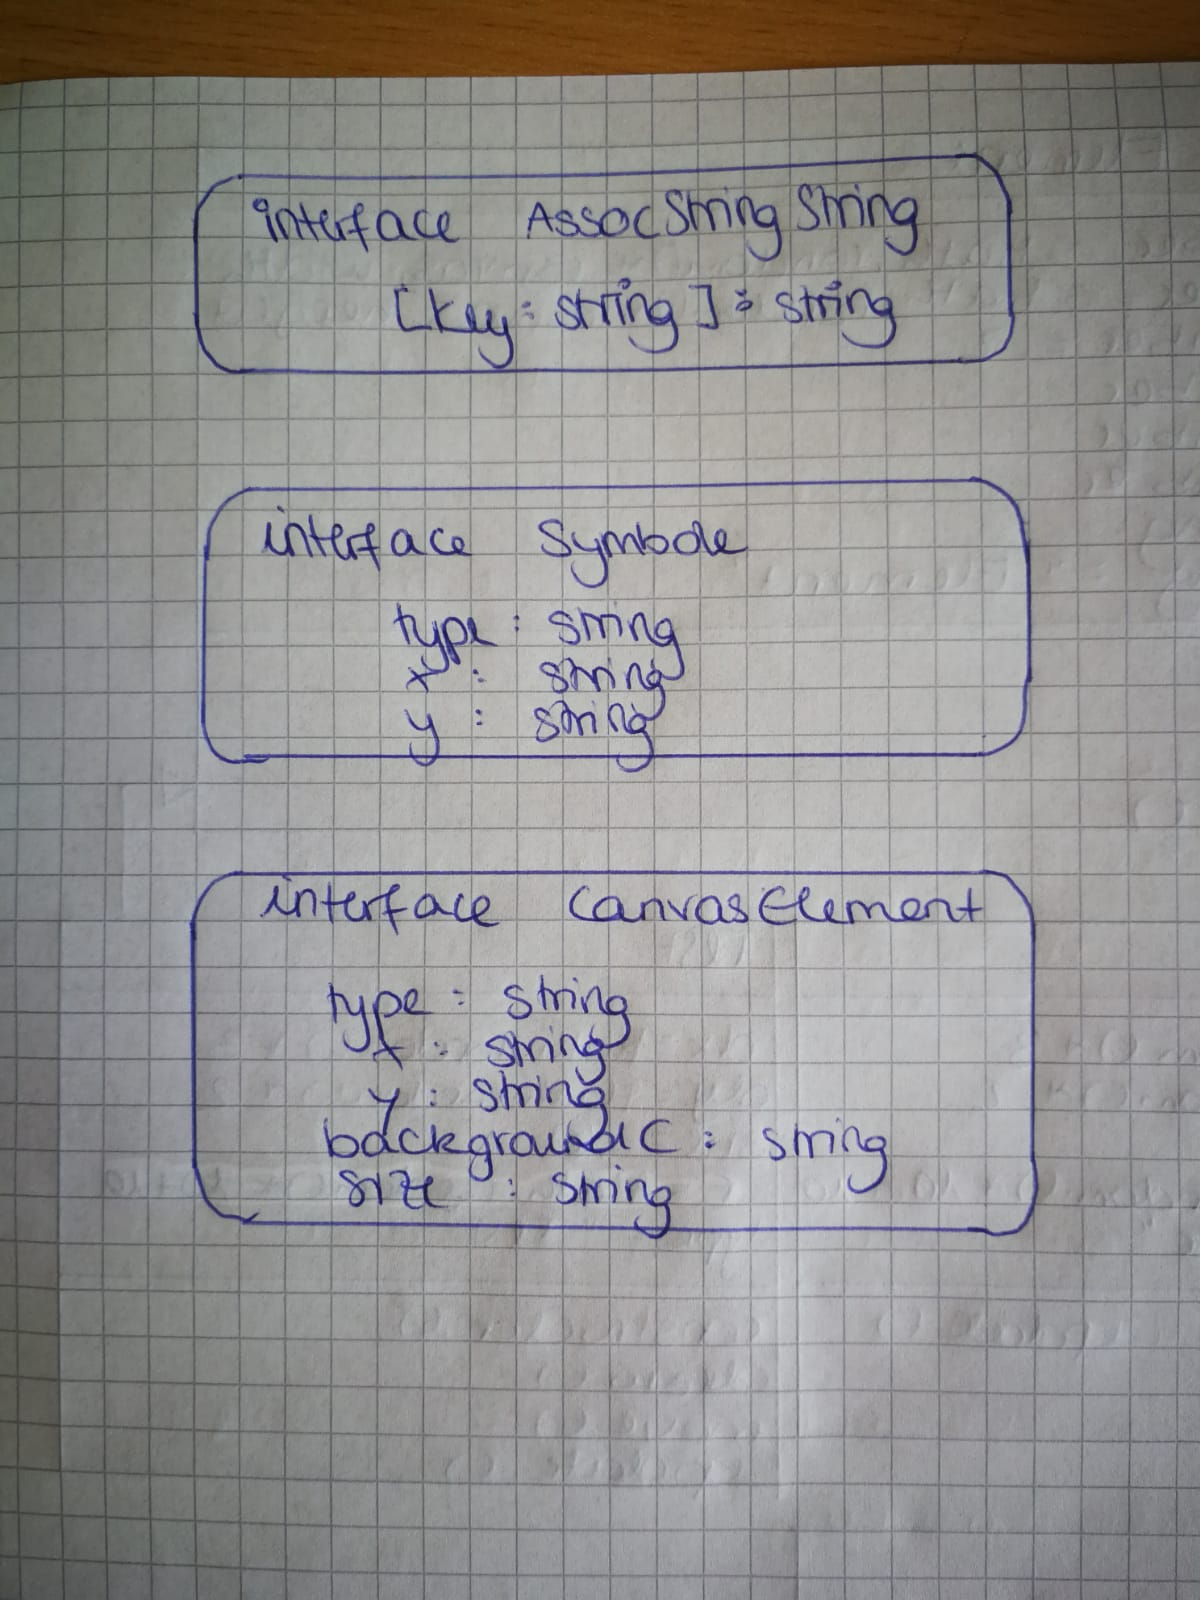 interface AssocStringString
[key: string]: string
interface Symbole
type: string
x : string
y : string
interface CanvasElement
type: string
x : string
y : string
backgroundC: string
size : string